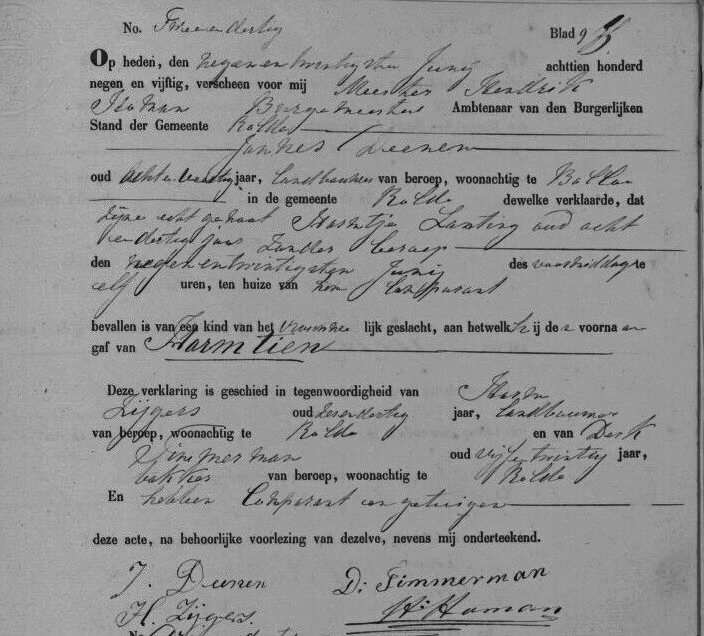 No. Tweeendertig Blad 9
Op heden, den negenentwintigsten Junij achttien honderd
negen en vijftig, verscheen voor mij Meester Hendrik
Homan Burgemeester Ambtenaar van den Burgerlijken
Stand der Gemeente Rolde
Jannes Deenen
oud achtenveertig jaar, landbouwer van beroep, woonachtig te Balloo
in de gemeente Rolde dewelke verklaarde, dat
zijne echtgenoot Harmtje Lanting oud acht
endertig jaar zonder beroep
den negenentwintigsten Junij des voormiddags te
elf uren, ten huize van hem Comparant
bevallen is van een kind van het vrouwelijk geslacht, aan hetwelk hij de voorna
gaf van Harmtien
Deze verklaring is geschied in tegenwoordigheid van Harm
Zijgers oud zevenendertig jaar, landbouwer
van beroep, woonachtig te Rolde en van Derk
Timmerman oud vijfentwintig jaar,
bakker van beroep, woonachtig te Rolde
En hebben Comparant en getuigen
deze acte, na behoorlijke voorlezing van dezelve, nevens mij onderteekend.
J. Deenen D: Timmerman
H. Zijgers. H: Homan
No.